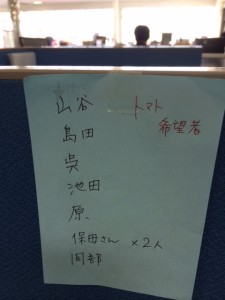 山谷 トマト
島田 希望者
呉
池田
原
保田さん ×2人
岡部